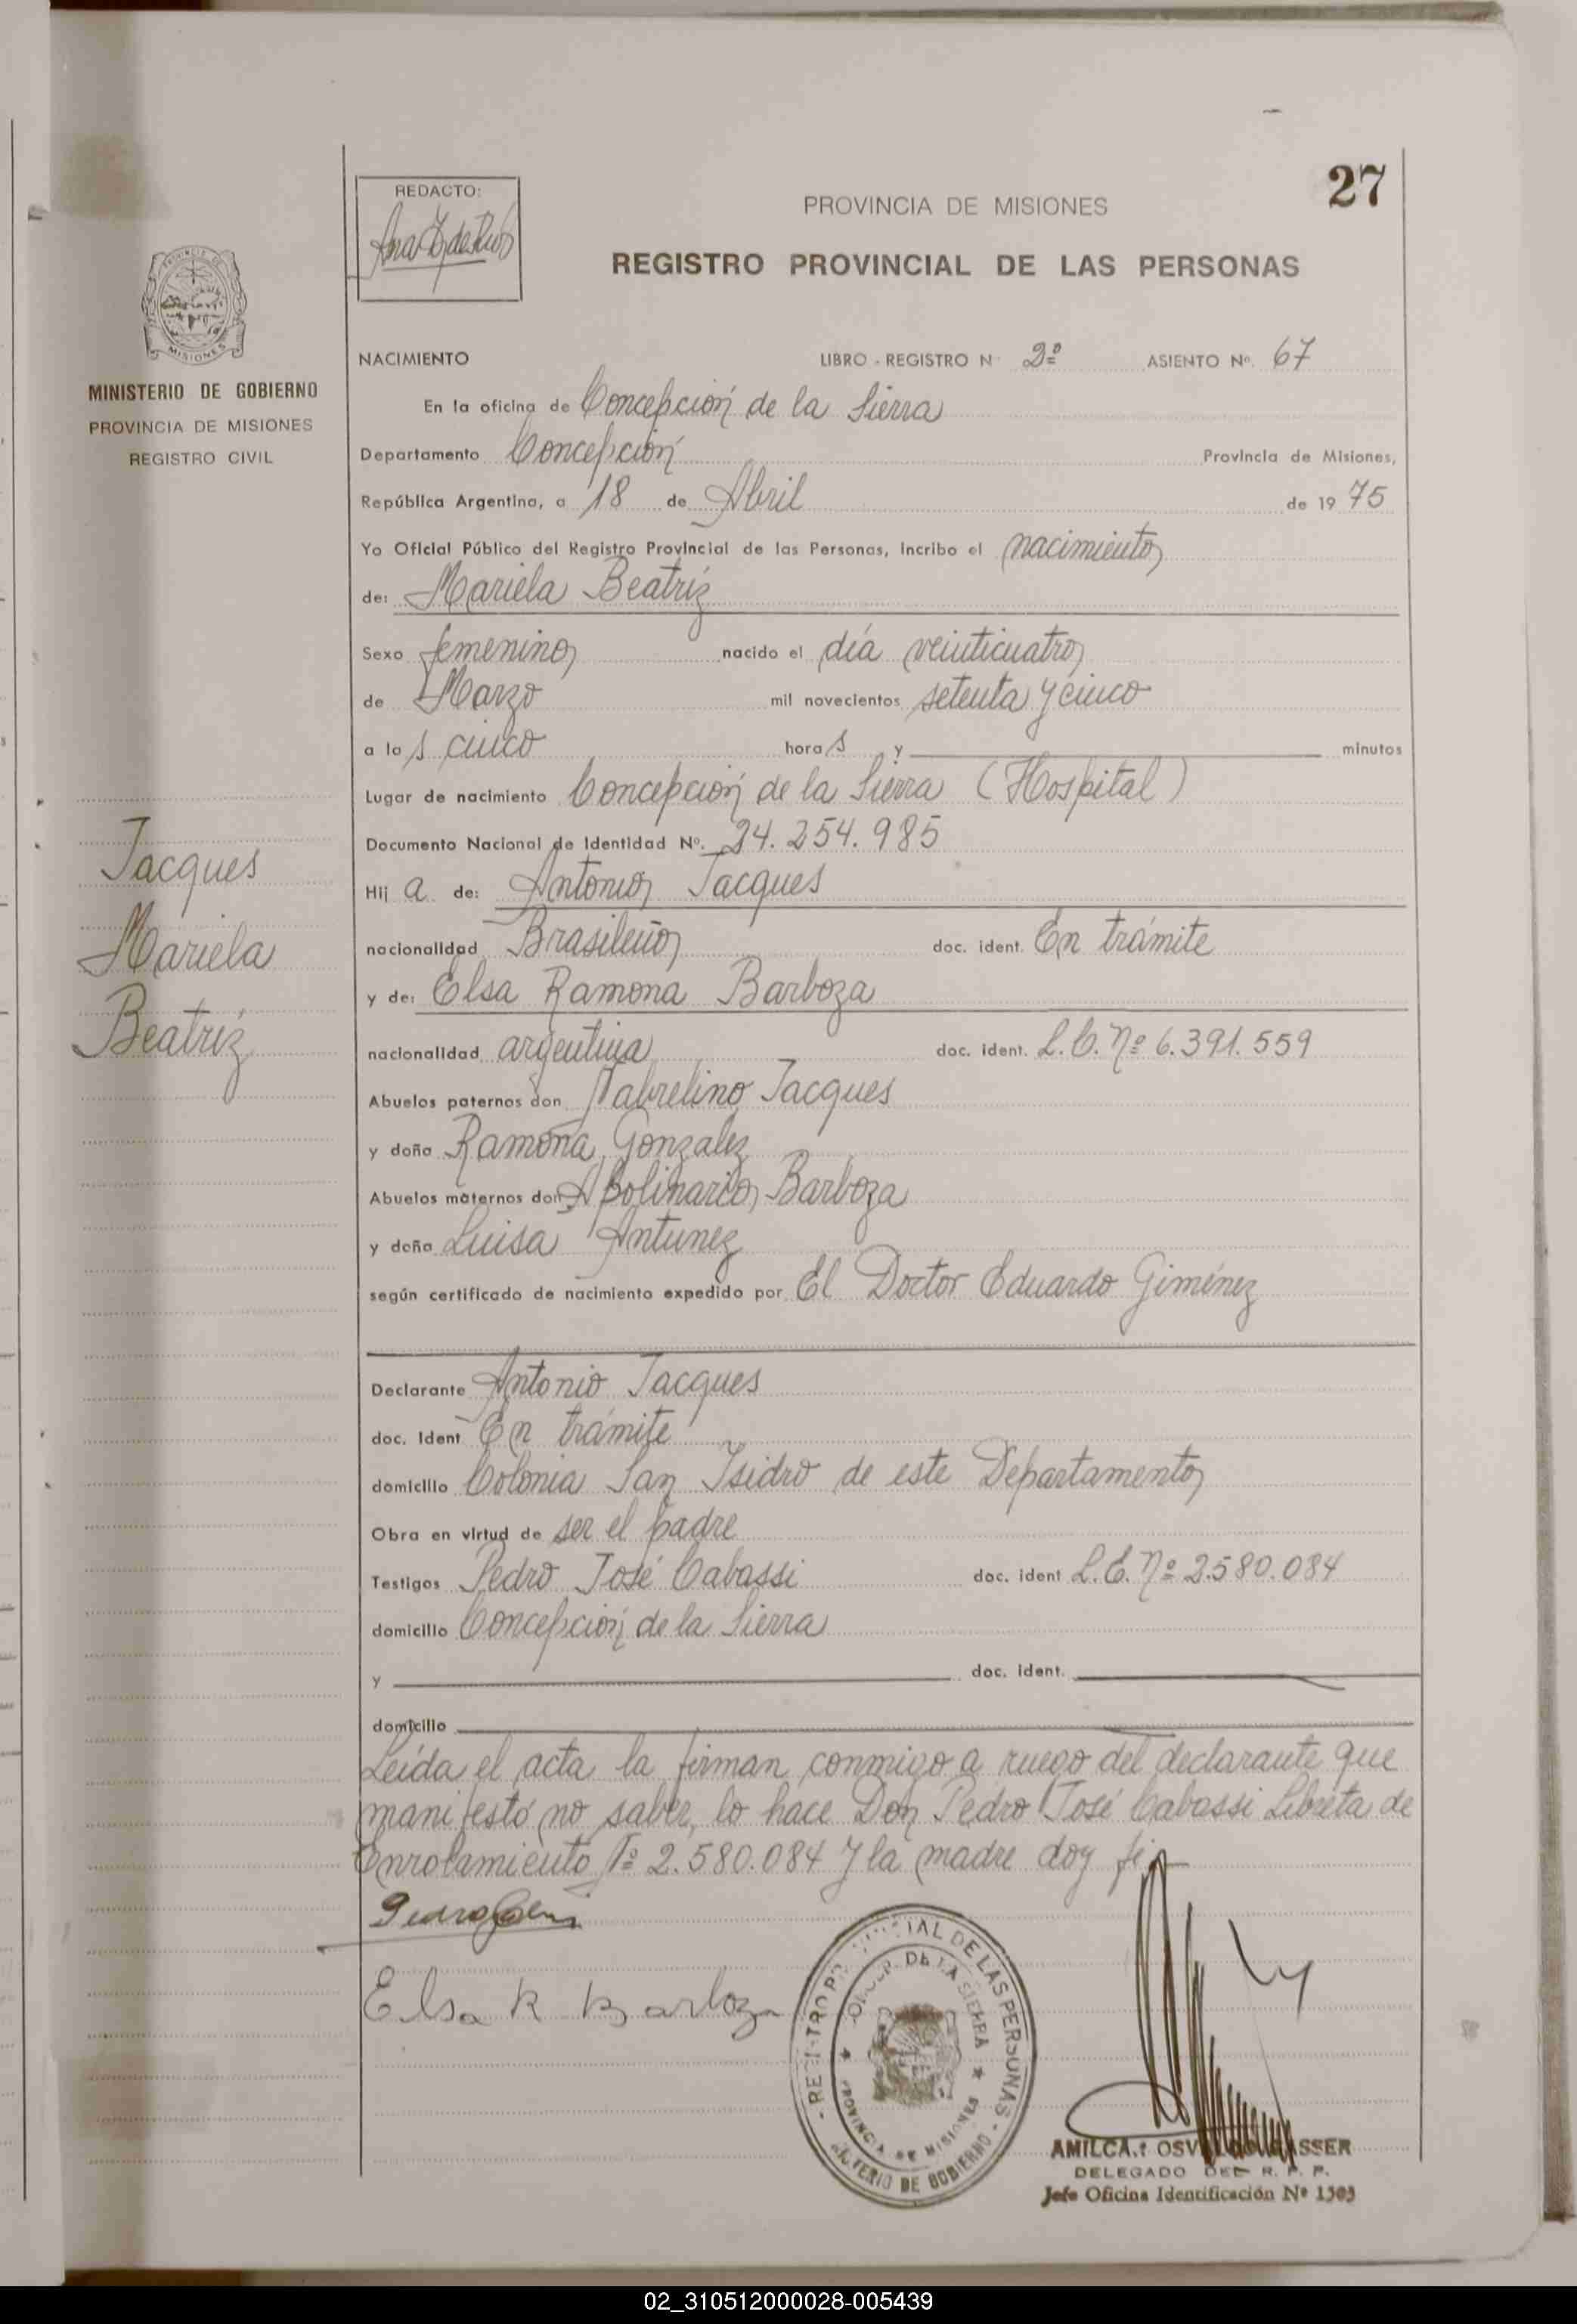 27
REDACTO:
PROVINCIA DE MISIONES
REGISTRO PROVINCIAL DE LAS PERSONAS
MISIONES
MINISTERIO DE GOBIERNO
PROVINCIA DE MISIONES
REGISTRO CIVIL
NACIMIENTO LIBRO - REGISTRO N 2º ASIENTO Nº. 67
En la oficina de Concepción de la Sierra
Departamento Concepción Provincia de Misiones,
República Argentina, a 18 de Abril de 19 75
Yo Oficial Público del Registro Provincial de las Personas, incribo el nacimiento
de: Mariela Beatríz
Sexo femenino nacido el día veinticuatro
de Marzo mil novecientos setenta y cinco
a la s cinco hora s y minutos
Lugar de nacimiento Concepción de la Sierra (Hospital)
Documento Nacional de Identidad Nº. 24.254.985
Hij a de: Antonio Jacques
nacionalidad Brasileño doc. ident. En trámite
y de: Elsa Ramona Barboza
nacionalidad argentina doc. ident. L.C. Nº 6.391.559
Abuelos paternos don Jacques
y doña Ramona Gonzalez
Abuelos maternos don Apolinario Barboza
y doña Luisa Antunez
según certificado de nacimiento expedido por El Doctor Eduardo Giménez
Declarante Antonio Jacques
doc. Ident En trámite
domicilio Colonia San Isidro de este Departamento
Obra en virtud de ser el padre
Testigos Pedro José Cabassi doc. ident L.E. Nº 2.580.084
domicilio Concepción de la Sierra
y doc. ident.
domicilio
Leída el acta la firman conmigo a ruego del declarante que
manifestó no saber, lo hace Don Pedro José Cabassi Libreta de
Enrolamiento Nº 2.580.084 y la madre doy fe
Elsa R Barboza
Jacques
Mariela
Beatríz
DE LAS PERSONAS
DE LA SIERRA
PROVINCIA DE MISIONES
DE GOBIERNO
DELEGADO DEL R. P. P.
Jefe Oficina Identificación Nº 1303
02_310512000028-005439